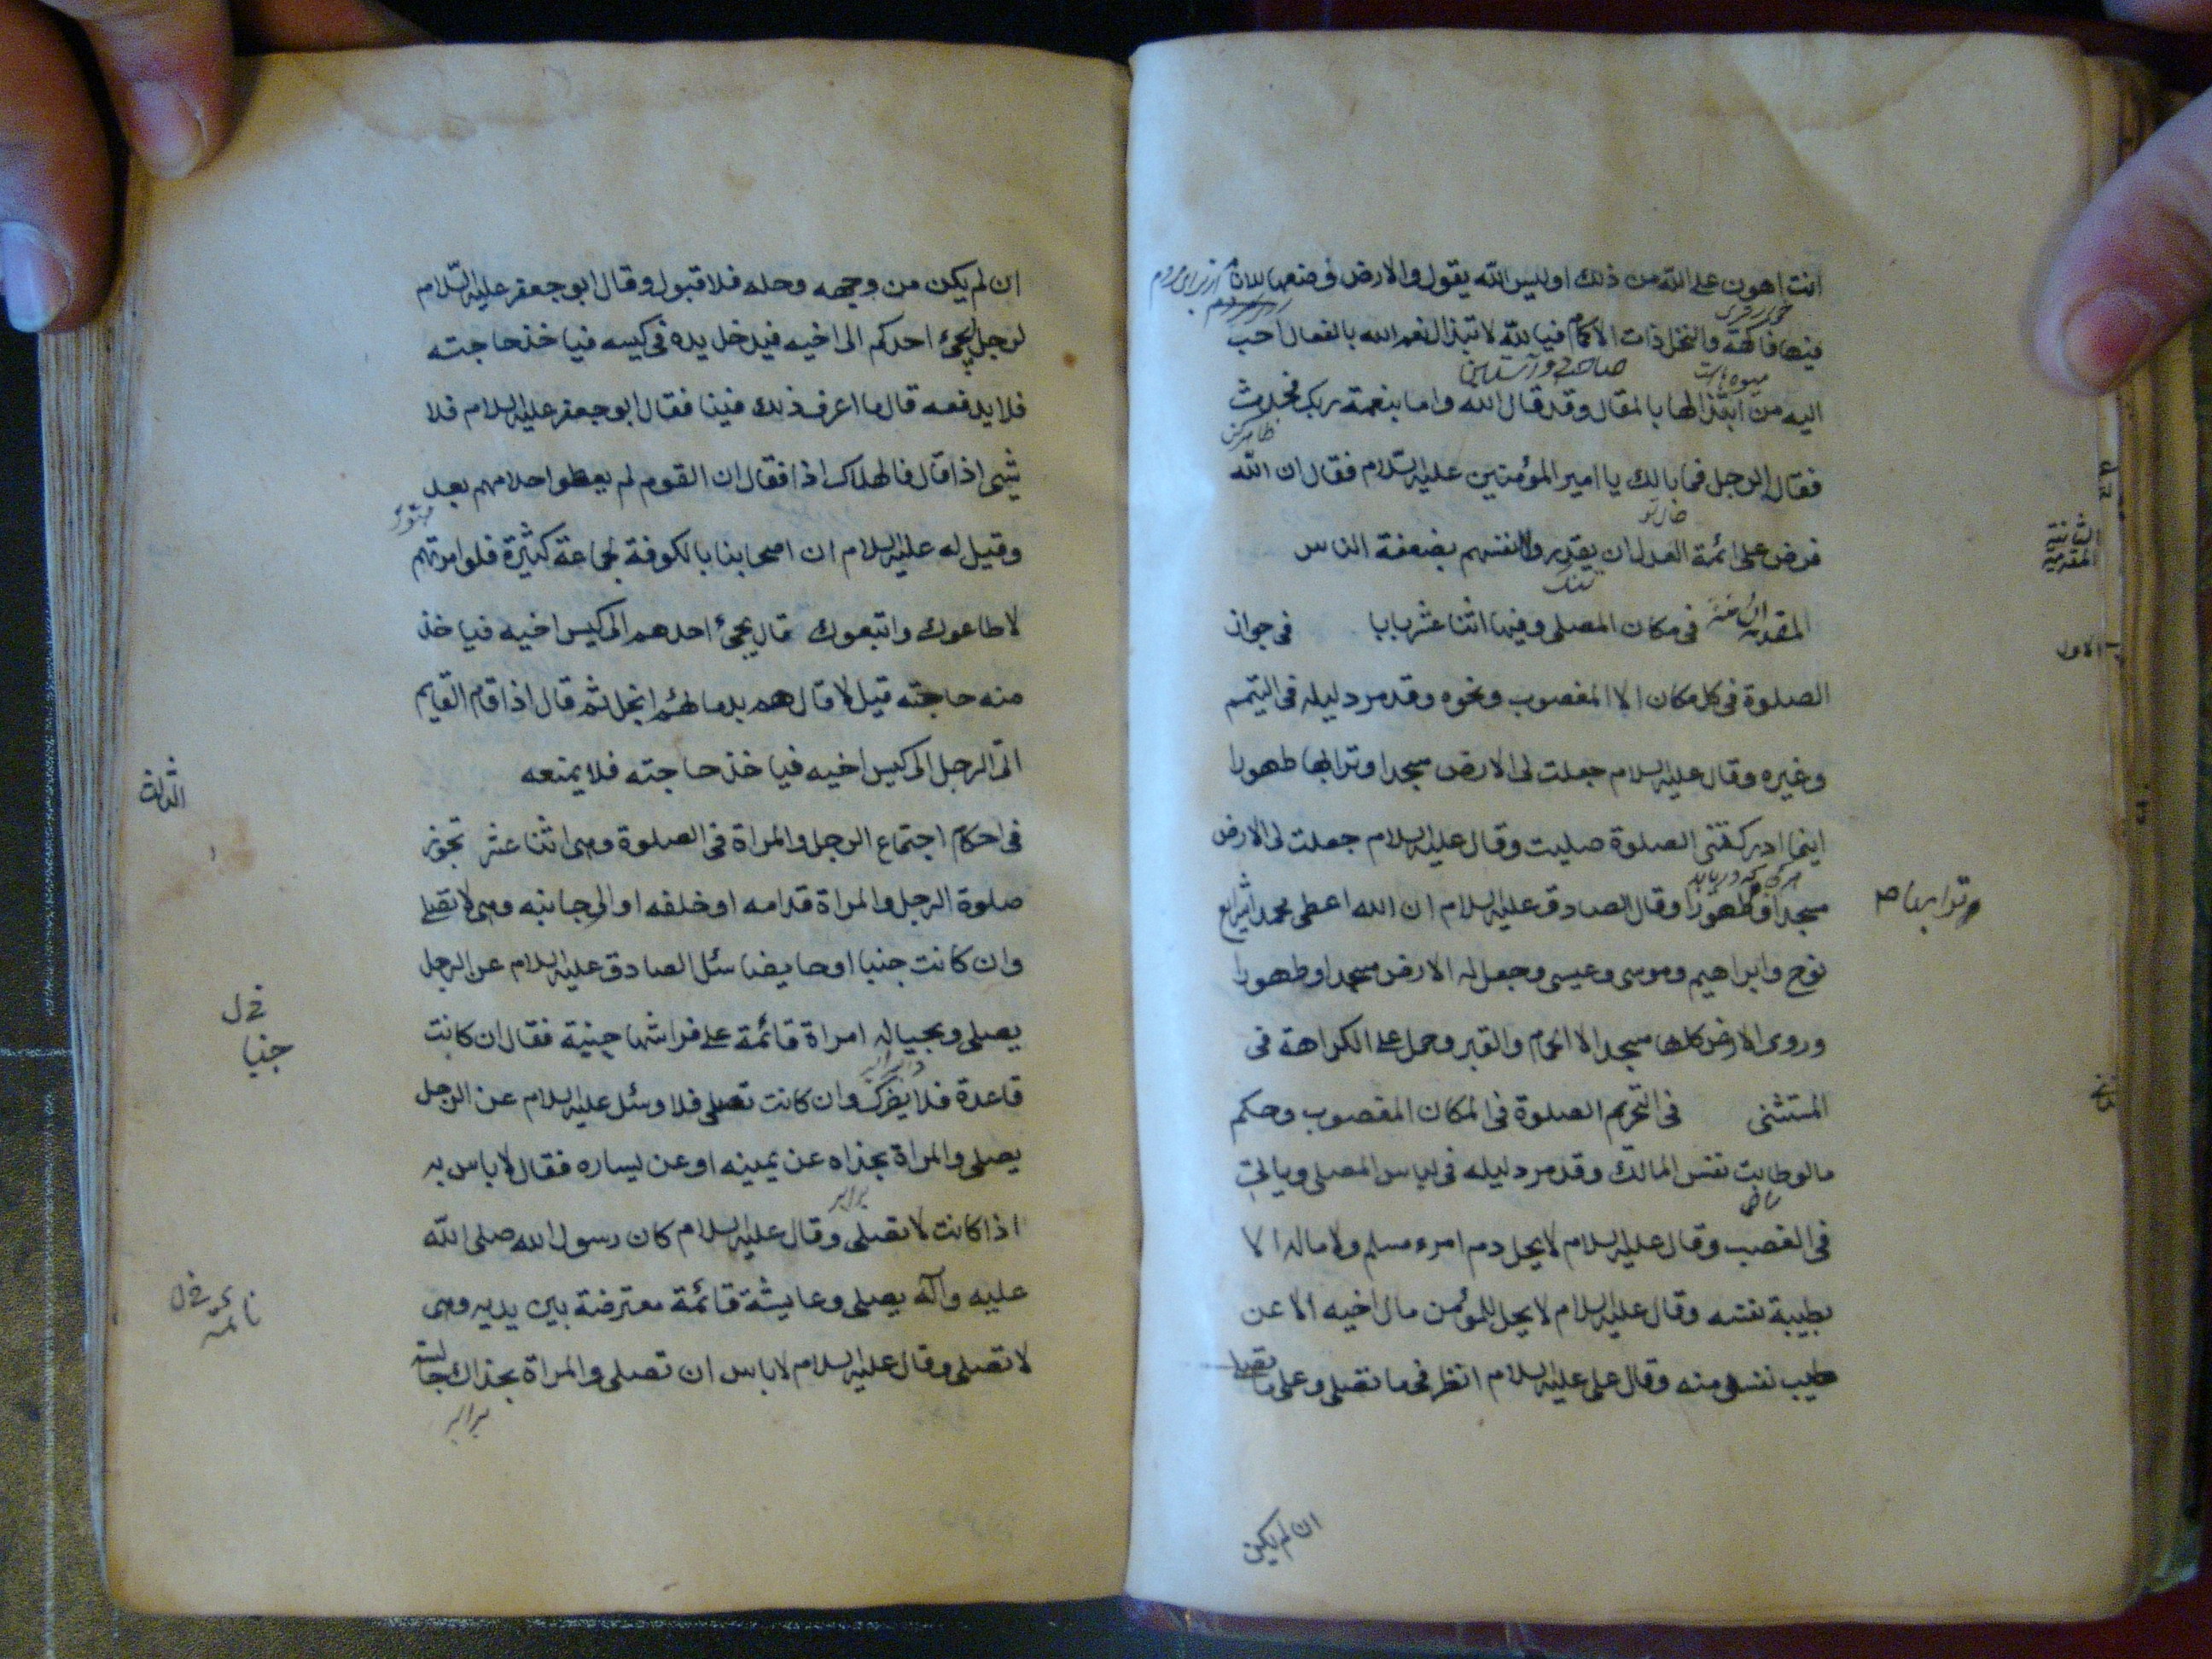 انت اهون على الله من ذلك اوليس الله يقول والارض وضعها للانام
فيها فاكهة والنخل ذات الاكمام فبالله لابتذال نعم الله بالفعال احب
اليه من ابتذالها بالمقال وقد قال الله واما بنعمة ربك فحدث
فقال الرجل فما بالك يا امير المؤمنين عليه السلام فقال ان الله
فرض على ائمة العدل ان يقدروا انفسهم بضعفة الناس
المقدمة الثانية فى مكان المصلى وفيها اثنا عشر بابا فى جواز
الصلوة فى كل مكان الا المغصوب ونحوه وقد مر دليله فى التيمم
وغيره وقال عليه السلام جعلت لى الارض مسجدا وترابها طهورا
اينما ادركتنى الصلوة صليت وقال عليه السلام جعلت لى الارض
مسجدا وطهورا وقال الصادق عليه السلام ان الله اعطى محمد شرايع
نوح وابراهيم وموسى وعيسى وجعل له الارض مسجدا وطهورا
وروى الارض كلها مسجد الا الحمام والقبر وحمل على الكراهة فى
المستثنى فى التحريم الصلوة فى المكان المغصوب وحكم
ما لو طابت نفس المالك وقد مر دليله فى لباس المصلى وياتى
فى الغصب وقال عليه السلام لا يحل دم امرء مسلم ولا ماله الا
بطيبة نفسه وقال عليه السلام لا يحل للمؤمن مال اخيه الا عن
طيب نفس منه وقال على عليه السلام انظر فى ما تصلى وعلى ما تصلى
الثانية
المقدمة
الاول
وترابها
ان لم يكن
ان لم يكن من وجهه وحله فلا قبول وقال ابو جعفر عليه السلام
لرجل يجئ احدكم الى اخيه فيدخل يده فى كيسه فياخذ حاجته
فلا يدفعه قال ما اعرف ذلك فينا فقال ابو جعفر عليه السلام فلا
شئ اذا قال فالهلاك اذا فقال ان القوم لم يعطوا احلامهم بعد
وقيل له عليه السلام ان اصحابنا بالكوفة لجماعة كثيرة فلو امرتهم
لاطاعوك واتبعوك قال يجئ احدهم الى كيس اخيه فياخذ
منه حاجته قيل لا قال هم بدمائهم ابخل ثم قال اذا قام القايم
اتى الرجل الى كيس اخيه فياخذ حاجته فلا يمنعه
فى احكام اجتماع الرجل والمراة فى الصلوة وهى اثنا عشر تجوز
صلوة الرجل والمراة قدامه او خلفه او الى جانبه وهى لا تصلى
وان كانت جنبا او حايضا سئل الصادق عليه السلام عن الرجل
يصلى وبحياله امراة قائمة على فراشها جنبة فقال ان كانت
قاعدة فلا يضرك وان كانت تصلى فلا وسئل عليه السلام عن الرجل
يصلى والمراة بحذاه عن يمينه او عن يساره فقال لا باس به
اذا كانت لا تصلى وقال عليه السلام كان رسول الله صلى الله
عليه وآله يصلى وعايشة قائمة معترضة بين يديه وهى
لا تصلى وقال عليه السلام لا باس ان تصلى والمراة بحذاك جالسة
برابر
برابر
الثالث
جنبا
نائمة